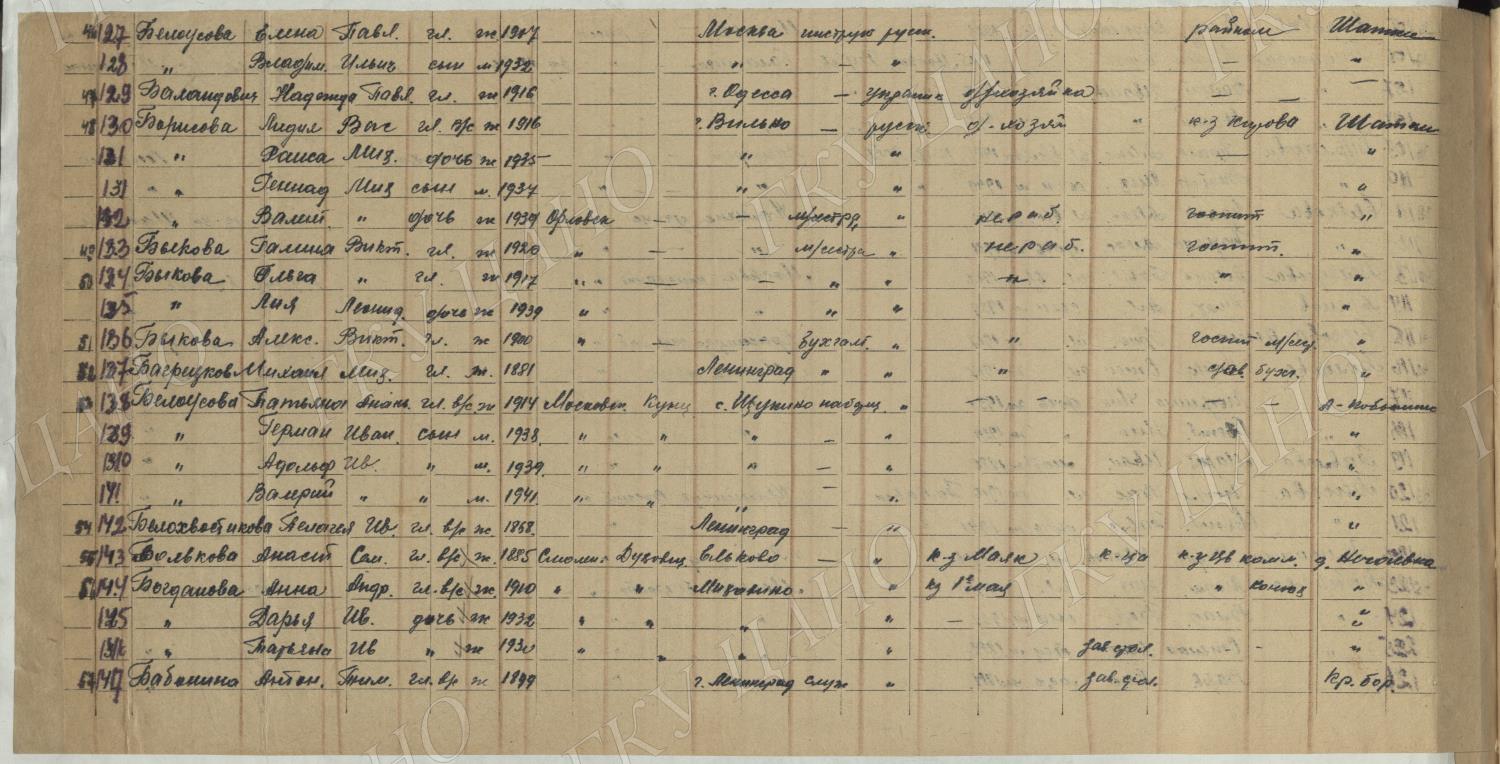 46 127 Белоусова Елена Павл. гл. ж 1907 Москва инструк русск. райком Шатки
128 " Владим. Ильич сын м 1932 " — " — "
47 129 Баландович Надежда Павл. гл. ж 1916 г. Одесса — украинк д/хозяйка — —
48 130 Борисова Лидия Вас гл. в/с ж 1916 г. Вильно — русск д/-хозяй " к-з Кирова Шатки
131 " Раиса Мих. дочь ж 1935 " " — "
131 " " Геннад Мих сын м. 1937 " " " "
132 " Валент " дочь ж 1939 Орловск — — м/сестра " не раб. госпит "
49 133 Быкова Галина Викт. гл. ж 1920 " — " м/сестра " не раб. госпит. "
50 134 Быкова Ольга " гл. ж 1917 " " — — " " " " "
135 " Лия Леонид. дочь ж 1939 " " " "
51 136 Быкова Алекс. Викт. гл. ж 1900 " — бухгалт. " " госпит м/сед. "
52 137 Багрецков Михаил Мих. гл. м. 1881 Ленинград " " " зав. бухг. "
53 138 Белоусова Татьяна Анан. гл. в/с ж 1914 Московск. Кунц с. Щукино " — — "
139 " Герман Иван. сын м. 1938 " " " — " "
" Адольф Ив. " м. 1939. " " " — " "
141. " Валерий " " м. 1941. " " — " "
54 142 Белохвостикова Пелагея Ив. гл. в/с ж. 1868. Ленинград — " "
55 143 Волькова Анаст Сем. гл. в/с ж. 1885 Смолен. Духовщ. Ельково — " к-з Маяк к-ца к-з Цв комм. д.
56 144 Богданова Анна Андр. гл. в/с ж. 1910 " " Миханино. " кз 1е мая " конюх "
145 " Дарья Ив. дочь ж 1932 " " " — "
" Татьяна Ив " ж 1930 " " " " зав. стол. — "
57 147 Бабонина Антон. Тим. гл. в/с ж 1899 г. Ленинград служ " зав. стол. Кр. бор.
ГКУ ЦАНО